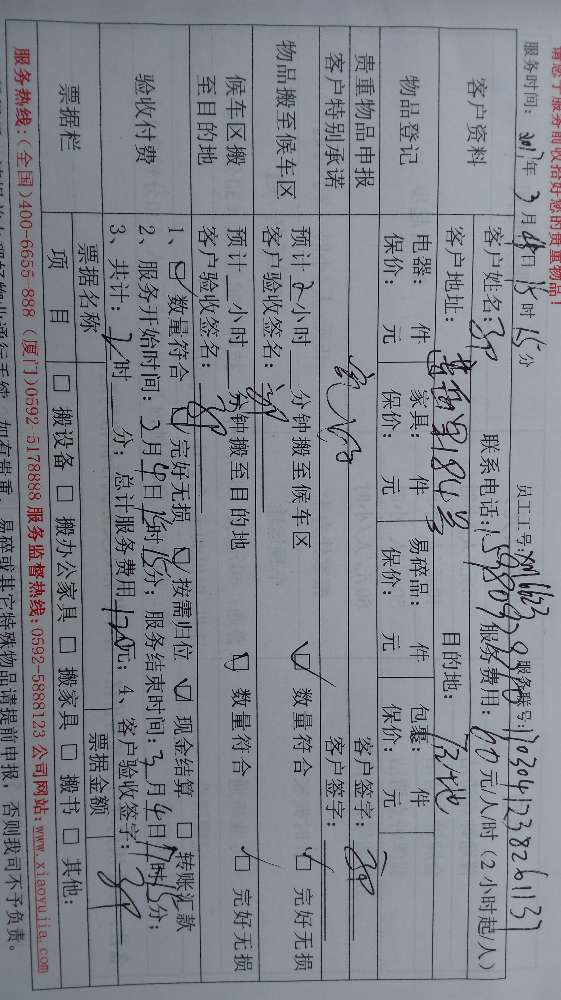 请您于服务前收拾好您的贵重物品!
服务时间: 2017年 3月 4日 15时 15分 员工工号: xm6623 服务账号: 170304123826 1137
客户资料
客户姓名: 联系电话: 服务费用: 90元/人/时(2小时起/人)
客户地址: 184号 目的地:
物品登记
电器: 件 家具: 件 易碎品: 件 包裹: 件
保价: 元 保价: 元 保价: 元 保价: 元
贵重物品申报 客户签字:
客户特别承诺 客户签字:
物品搬至候车区
预计 2 小时 分钟搬至候车区 数量符合 完好无损
客户验收签名:
候车区搬至目的地
预计 小时 分钟搬至目的地 数量符合 完好无损
客户验收签名:
验收付费
1、 数量符合 完好无损 按需归位 现金结算 转账汇款
2、服务开始时间: 3月4日15时15分; 服务结束时间: 3月4日17时15分;
3、共计: 2时 分; 总计服务费用 元; 4、客户验收签字:
票据栏
票据名称 票据金额
项 目 搬设备 搬办公家具 搬家具 搬书 其他:
服务热线:(全国)400-6655-888 (厦门)0592-5178888 服务监督热线:0592-5888123 公司网站:www.xiaoyujia.com
物业通行手续,如有贵重、易碎或其它特殊物品请提前申报,否则我司不予负责。